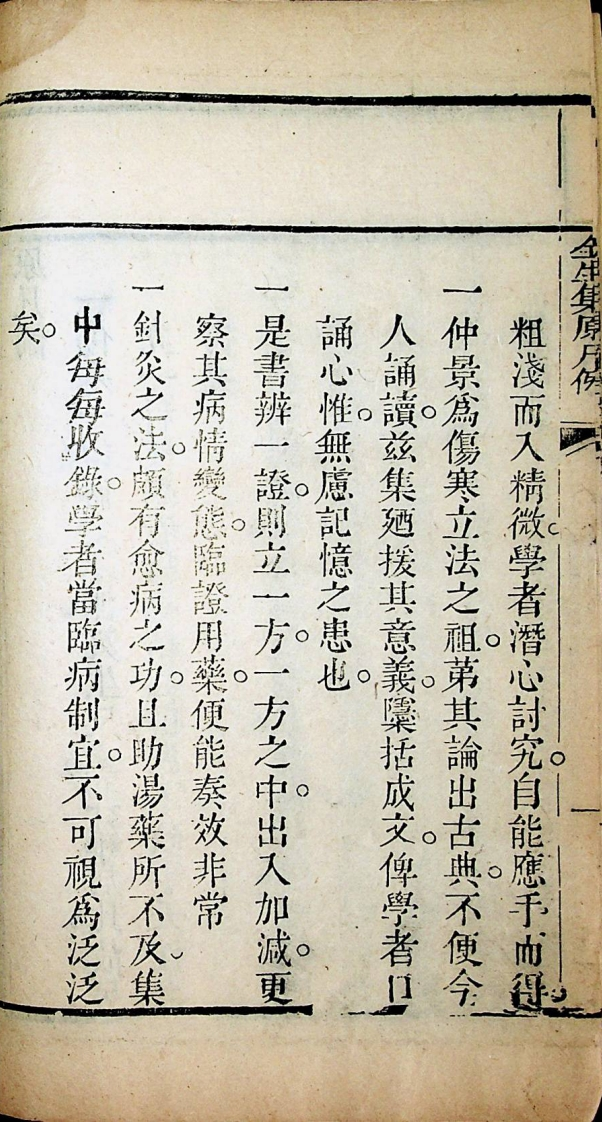 全生集原凡例
粗淺而入精微。學者潛心討究。自能應手而得。
一仲景爲傷寒立法之祖。第其論出古典。不便今
人誦讀。茲集廼援其意義。隱括成文。俾學者口
誦心惟。無慮記憶之患也。
一是書辨一證。則立一方。一方之中。出入加減。更
察其病情變態。臨證用藥。便能奏效非常
一針灸之法。頗有愈病之功。且助湯藥所不及。集
中每每收錄。學者當臨病制宜。不可視爲泛泛
矣。